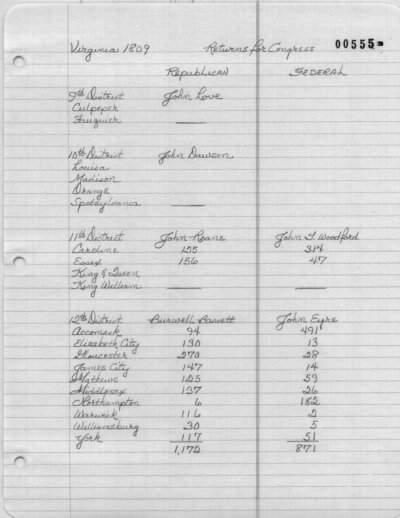 Virginia 1809 Returns for Congress 00555
Republican Federal
9th District John Love
Culpeper
Fauquier ——
10th District John Dawson
Louisa
Madison
Orange
Spotsylvania ——
11th District John Roane John T. Woodford
Caroline 155 314
Essex 156 47
King & Queen
King William —— ——
12th District Burwell Bassett John Eyre
Accomack 94 491
Elizabeth City 130 13
Gloucester 270 28
James City 147 14
Mathews 125 59
Middlesex 137 26
Northampton 6 182
Warwick 116 2
Williamsburg 30 5
York 117 51
1,172 871